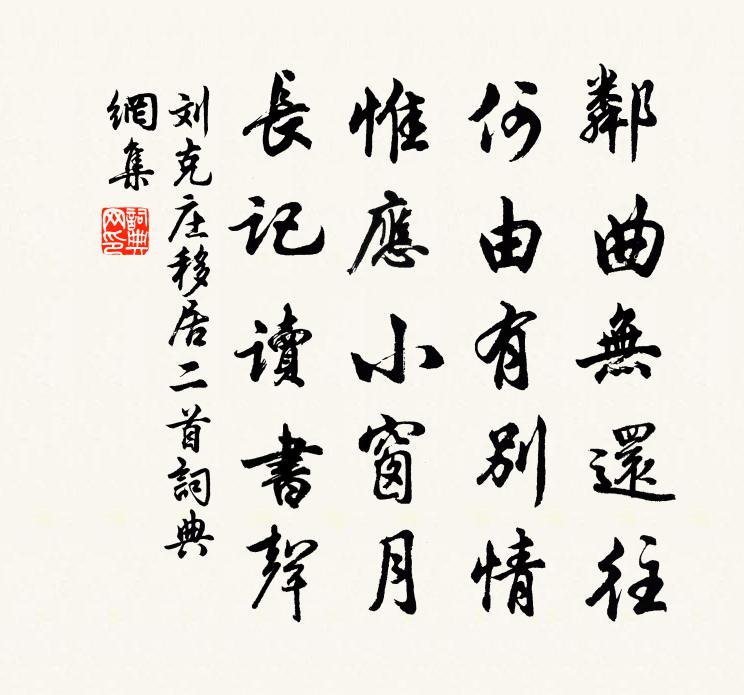 鄰曲無還往
何由有別情
惟應小窗月
長記讀書聲
刘克庄移居二首詞典
網集
詞典
网印